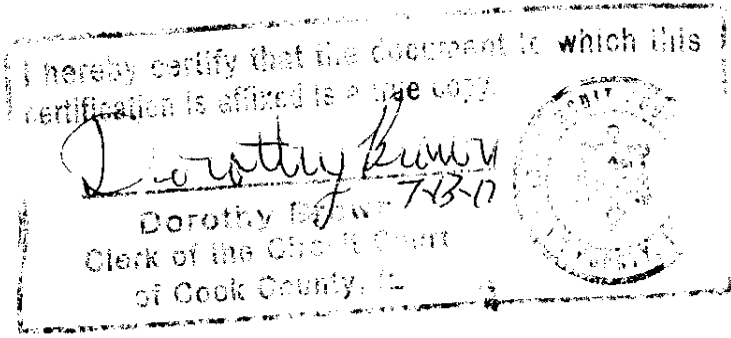 I hereby certify that the document to which this
certification is affixed is a true copy.
Dorothy Brown
7-13-17
Dorothy Brown
Clerk of the Circuit Court
of Cook County, IL